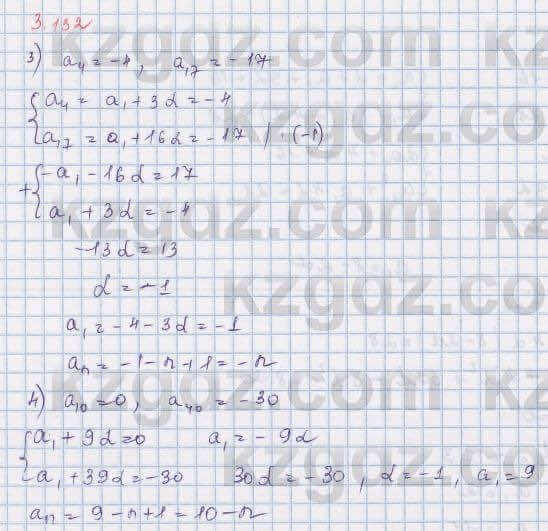 3.132
3) a₄ = -4, a₁₇ = -17
{ a₄ = a₁ + 3d = -4
a₁₇ = a₁ + 16d = -17 / · (-1)
+ { -a₁ - 16d = 17
a₁ + 3d = -4
-13d = 13
d = -1
a₁ = -4 - 3d = -1
aₙ = -1 - n + 1 = -n
4) a₁₀ = 0, a₄₀ = -30
{ a₁ + 9d = 0 a₁ = -9d
a₁ + 39d = -30 30d = -30, d = -1, a₁ = 9
aₙ = 9 - n + 1 = 10 - n
kzgdz.com
kzgdz.com
kzgdz.com
kzgdz.com
kzgdz.com